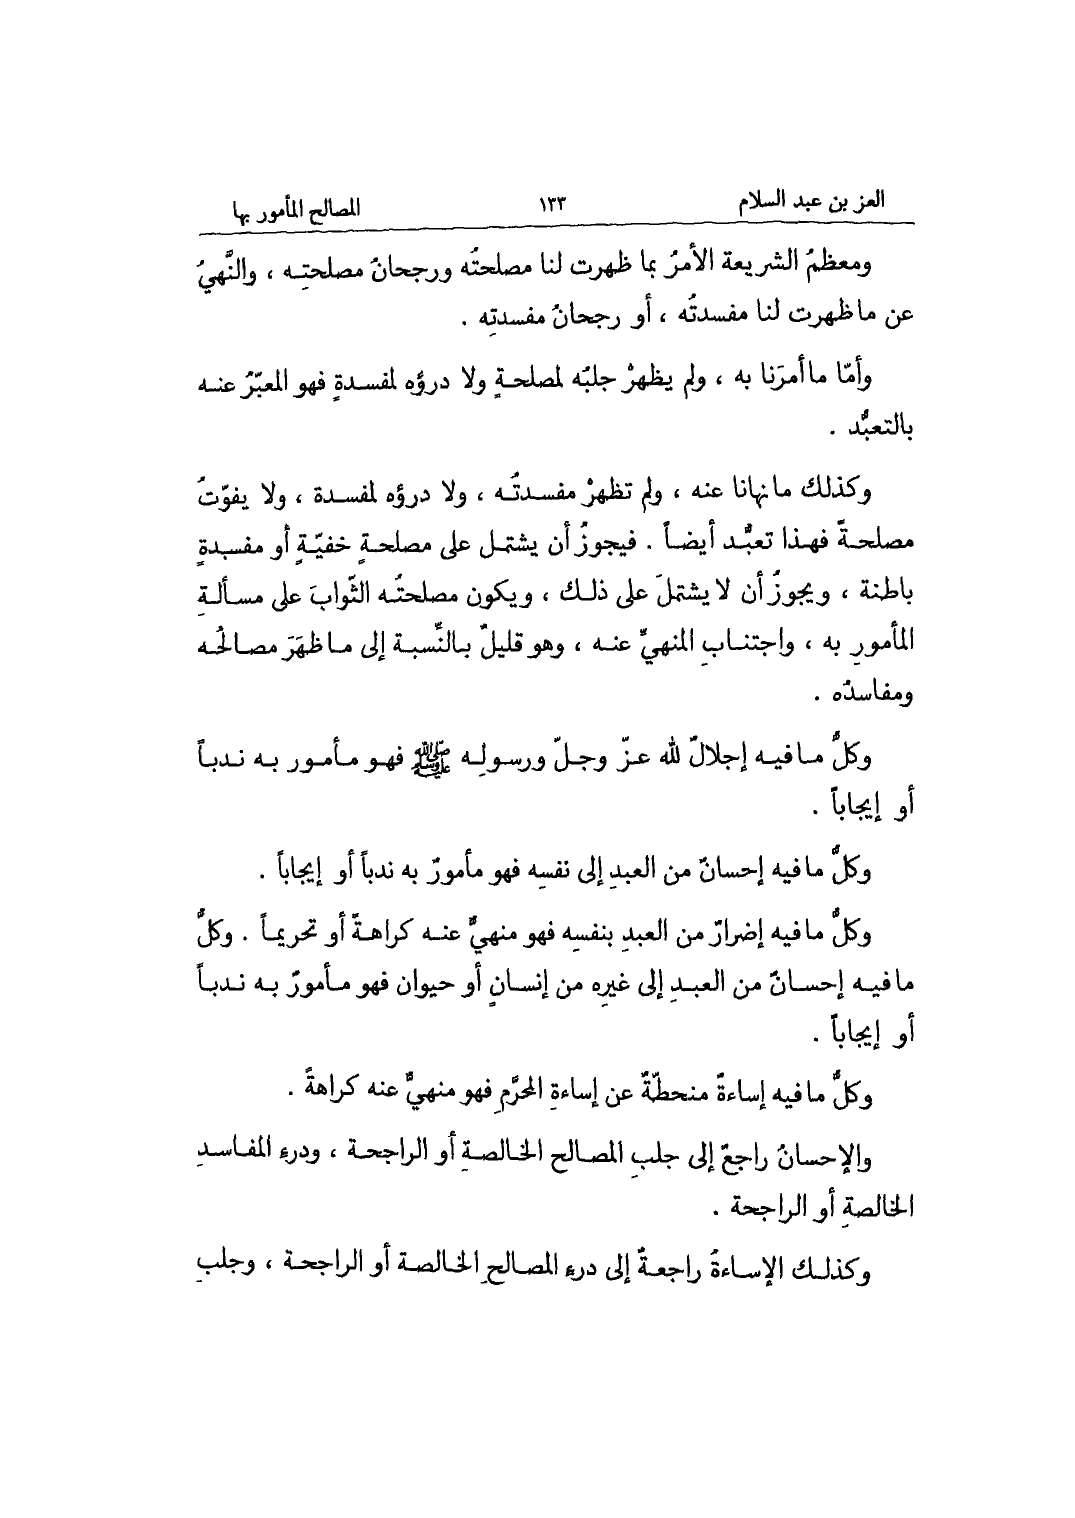 العز بن عبد السلام ١٣٣ المصالح المأمور بها
ومعظمُ الشريعة الأمرُ بما ظهرت لنا مصلحتُه ورجحانُ مصلحتِه ، والنَّهيُ
عن ما ظهرت لنا مفسدتُه ، أو رجحانُ مفسدتِه .
وأمّا ما أمرَنا به ، ولم يظهرْ جلبُه لمصلحةٍ ولا درؤه لمفسدةٍ فهو المعبّرُ عنه
بالتعبُّد .
وكذلك ما نهانا عنه ، ولم تظهرْ مفسدتُه ، ولا درؤه لمفسدة ، ولا يفوّتُ
مصلحةً فهذا تعبُّد أيضاً . فيجوزُ أن يشتمل على مصلحةٍ خفيّةٍ أو مفسدةٍ
باطنة ، ويجوزُ أن لا يشتملَ على ذلك ، ويكون مصلحتُه الثّوابَ على مسألةِ
المأمورِ به ، واجتنابِ المنهيِّ عنه ، وهو قليلٌ بالنِّسبة إلى ما ظهَرَ مصالحُه
ومفاسدُه .
وكلُّ ما فيه إجلالٌ لله عزّ وجلّ ورسولِه ﷺ فهو مأمور به ندباً
أو إيجاباً .
وكلُّ ما فيه إحسانٌ من العبدِ إلى نفسِه فهو مأمورٌ به ندباً أو إيجاباً .
وكلُّ ما فيه إضرارٌ من العبدِ بنفسِه فهو منهيٌّ عنه كراهةً أو تحريماً . وكلُّ
ما فيه إحسانٌ من العبدِ إلى غيرِه من إنسانٍ أو حيوان فهو مأمورٌ به ندباً
أو إيجاباً .
وكلُّ ما فيه إساءةٌ منحطّةٌ عن إساءةِ المحرَّمِ فهو منهيٌّ عنه كراهةً .
والإحسانُ راجعٌ إلى جلبِ المصالح الخالصةِ أو الراجحة ، ودرءِ المفاسدِ
الخالصةِ أو الراجحة .
وكذلك الإساءةُ راجعةٌ إلى درءِ المصالحِ الخالصة أو الراجحة ، وجلبِ